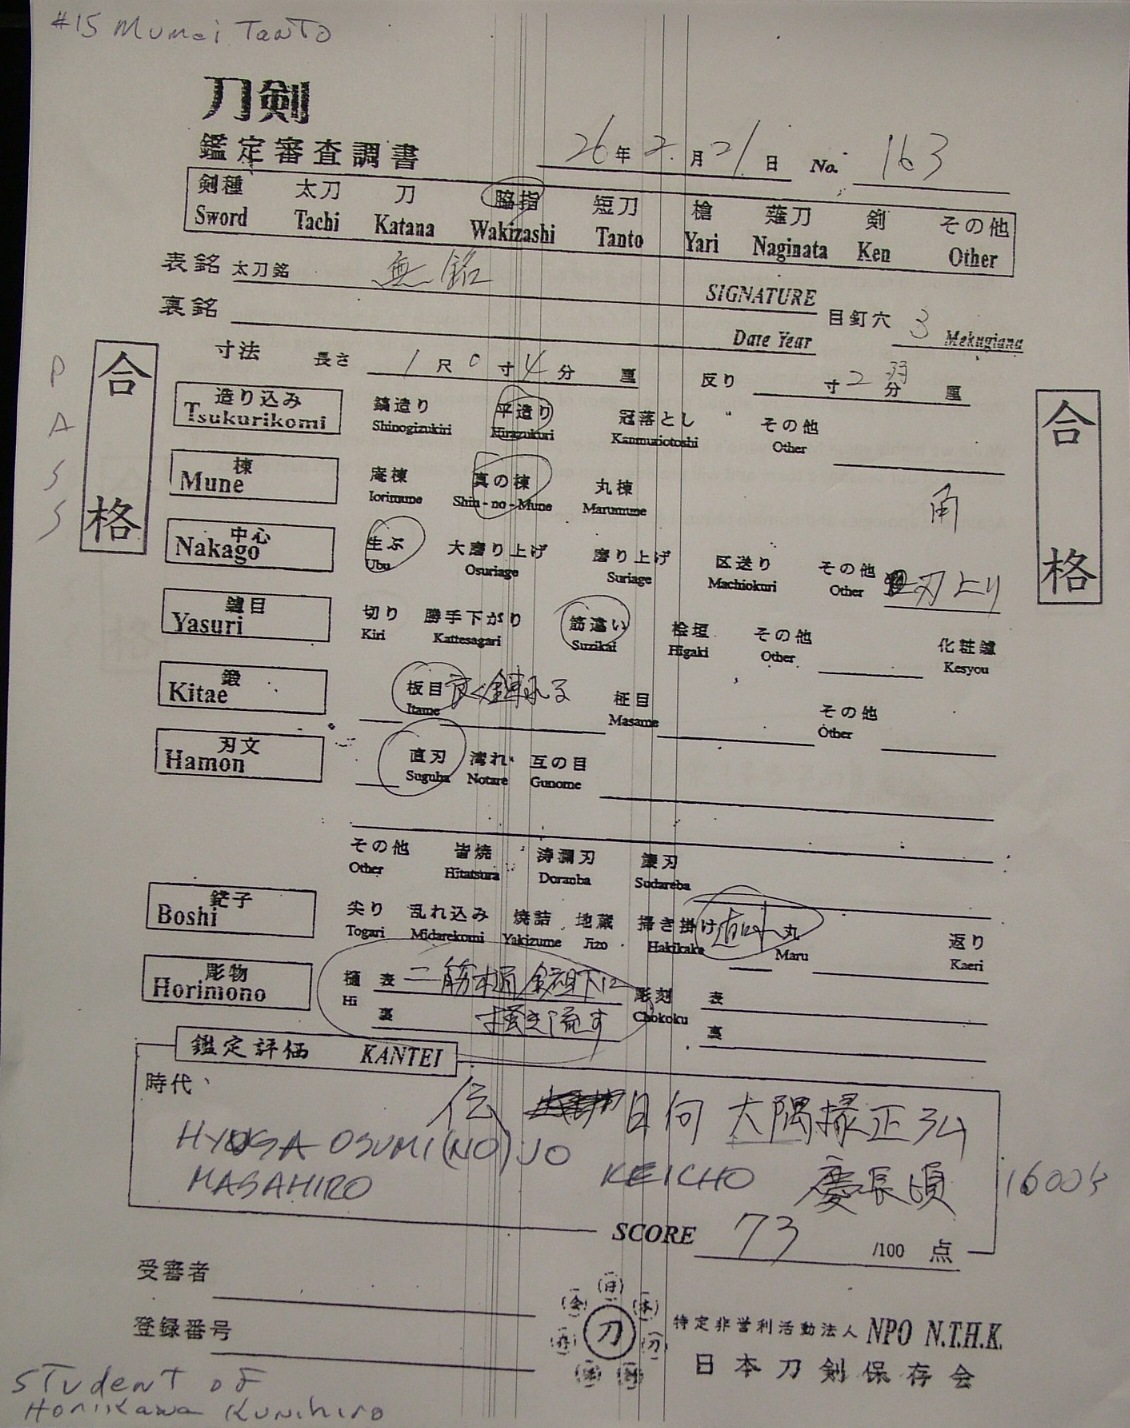 #15 Mumei TanTO
刀剣
鑑定審査調書 26年 2月 21日 No. 163
剣種 太刀 刀 脇指 短刀 槍 薙刀 剣 その他
Sword Tachi Katana Wakizashi Tanto Yari Naginata Ken Other
表銘 太刀銘 無銘 SIGNATURE
裏銘 Date Year 目釘穴 3 Mekugiana
寸法 長さ 1尺0寸4分 厘 反り 寸2分 厘
合格
PASS
合格
造り込み 鎬造り 平造り 冠落とし その他
Tsukurikomi Shinogizukiri Hirazukuri Kanmuriotoshi Other
棟 庵棟 真の棟 丸棟
Mune Iorimune Shin-no-Mune Marumune
中心 生ぶ 大磨り上げ 磨り上げ 区送り その他 刃上り
Nakago Ubu Osuriage Suriage Machiokuri Other
鑢目 切り 勝手下がり 筋違い 桧垣 その他 化粧鑢
Yasuri Kiri Kattesagari Suzikai Higaki Other Kesyou
鍛 板目 良く錬れる 柾目 その他
Kitae Itame Masame Other
刃文 直刃 湾れ 互の目
Hamon Suguha Notare Gunome
その他 皆焼 濤瀾刃 簾刃
Other Hitatsura Doranba Sudareba
鋩子 尖り 乱れ込み 焼詰 地蔵 掃き掛け 直に小丸 返り
Boshi Togari Midarekomi Yakizume Jizo Hakikake Maru Kaeri
彫物 樋 表 二筋樋 鎺下に 彫刻 表
Horimono Hi 裏 掻き流す Chokoku 裏
鑑定評価 KANTEI
時代、 伝 日向 大隅掾正弘
HYUGA OSUMI (NO) JO
MASAHIRO KEICHO 慶長頃 1600s
SCORE 73 /100 点
受審者
登録番号
刀
特定非営利活動法人 NPO N.T.H.K.
日本刀剣保存会
STudenT OF
Horikawa Kunihiro